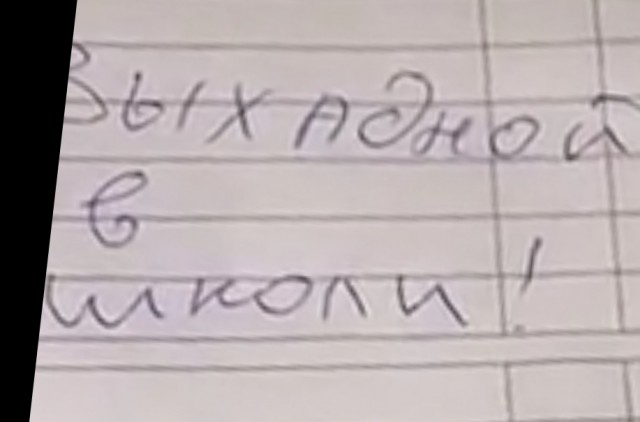 Выхадной
в
школи!